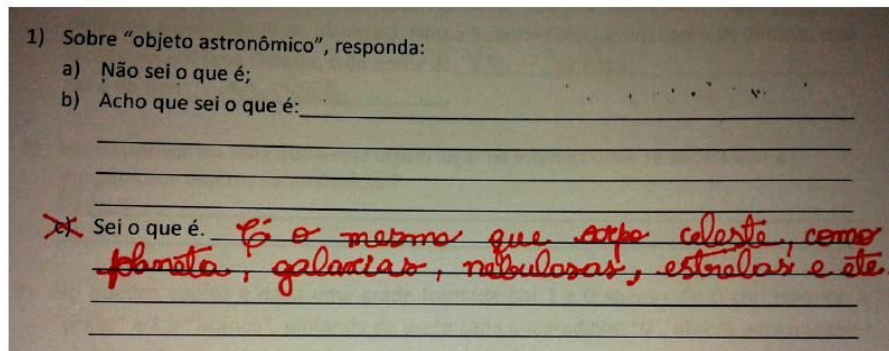 1) Sobre “objeto astronômico”, responda:
a) Não sei o que é;
b) Acho que sei o que é:
c) Sei o que é. É o mesmo que corpo celeste, como
planeta, galaxias, nebulosas, estrelas e etc.